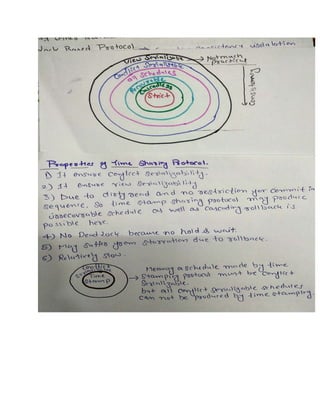 Based Protocol
View Serializable → Not much practical
Conflict Serializable
All schedules
Recoverable
Cascadeless
Strict
Properties of Time Sharing Protocol.
1) It ensure conflict serializability.
2) It ensure view serializability
3) Due to dirty read and no restriction for commit
sequence, So time stamp sharing protocol may produce
irrecoverable schedule as well as cascading rollback is
possible here.
4) No Deadlock because no hold & wait.
5) May suffer from starvation due to rollback.
6) Relatively slow.
Conflict
Time
Stamp
→ Meaning a schedule made by time
stamping protocol must be conflict
serializable.
but all conflict serializable schedules
can not be produced by time stamping.